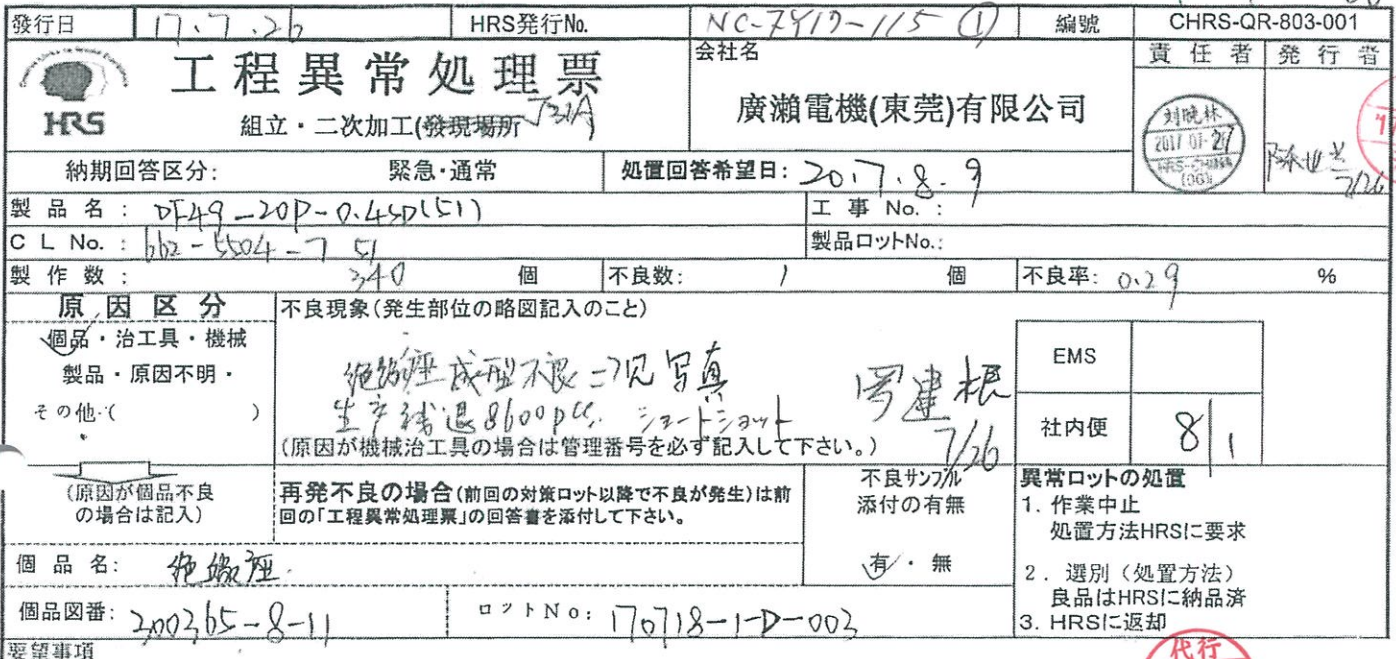 發行日 17.7.26 HRS発行No. NC-7Y17-115 ① 編號 CHRS-QR-803-001
HRS
工程異常処理票
組立・二次加工(發現場所 J32A)
会社名
廣瀨電機(東莞)有限公司
責任者 発行者
刘晓林
2017 07 27
HRS-CHINA
7/26
納期回答区分: 緊急・通常 処置回答希望日: 2017.8.9
製品名: DF49-20P-0.4SD(51) 工事 No. :
C L No. : 662-5504-7 51 製品ロットNo.:
製作数: 340 個 不良数: 1 個 不良率: 0.29 %
原因区分
個品・治工具・機械
製品・原因不明・
その他・( )
不良現象(発生部位の略図記入のこと)
绝缘座成型不良 写真
生产线退8600pcs. ショートショット
罗建根
7/26
(原因が機械治工具の場合は管理番号を必ず記入して下さい。)
EMS
社内便 8/1
(原因が個品不良
の場合は記入)
再発不良の場合(前回の対策ロット以降で不良が発生)は前
回の「工程異常処理票」の回答書を添付して下さい。
不良サンプル
添付の有無
有・無
異常ロットの処置
1. 作業中止
処置方法HRSに要求
2. 選別(処置方法)
良品はHRSに納品済
3. HRSに返却
個品名: 绝缘座
個品図番: 200365-8-11 ロットNo: 170718-1-D-003
要望事項
代行